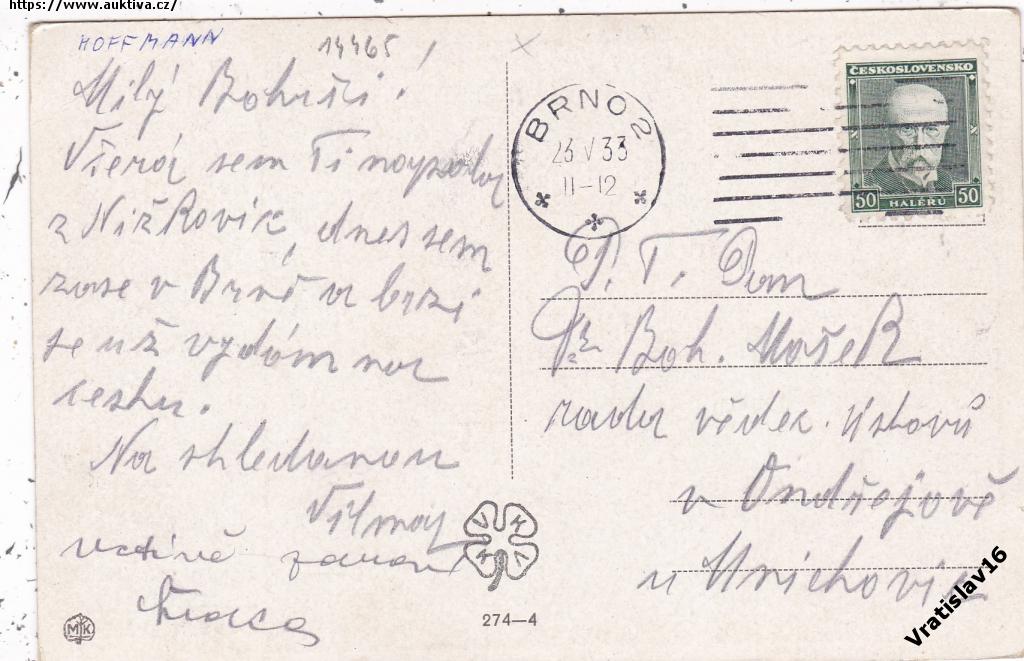 https://www.auktiva.cz/
HOFFMANN 14465
Milý Bohuši!
sem Ti
z Nížkovic, dnes sem
zase v Brně a brzi
se už vydám na
cestu.
Na shledanou
Vilmoy
uctivě
BRNO 2
23 V 33
11-12
ČESKOSLOVENSKO
50 HALÉŘŮ 50
P. T. Pan
Boh. Mašek
rada vědec. Ústavů
v Ondřejově
u Mnichovic
V K V K
MK
274—4
Vratislav16